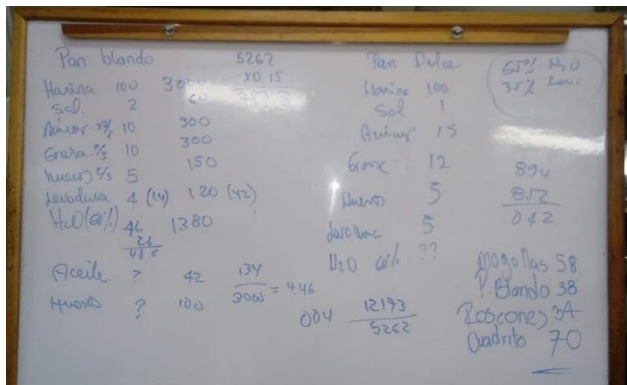 Pan blando
Harina 100 3000
Sal. 2 60
Azúcar 10 300
Grasa 10 300
huevos 5 150
Levadura 4 120 (42)
H2O (60%) 46 1380
Aceite ? 42
Huevo ? 100
134
3000 = 4.46
5262
x0.15
Pan Dulce
Harina 100
Sal 1
Azúcar 15
Grasa 12
Huevos 5
Levadura 5
H2O 60% ??
004
12193
5262
65% H2O
35%
894
852
042
Mogollas 58
P. Blando 38
Roscones 34
Cuadrito 70